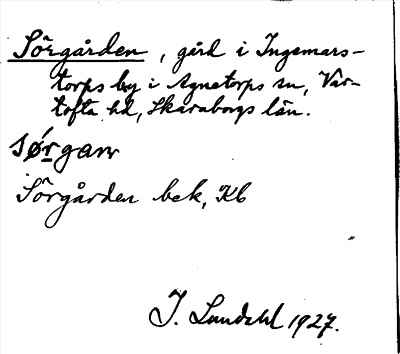 Sörgården, gård i Ingemars-
torps by i Agnetorps sn, Var-
tofta hd, Skaraborgs län.
Sörgården bek, Kb
I. Lundahl 1927.